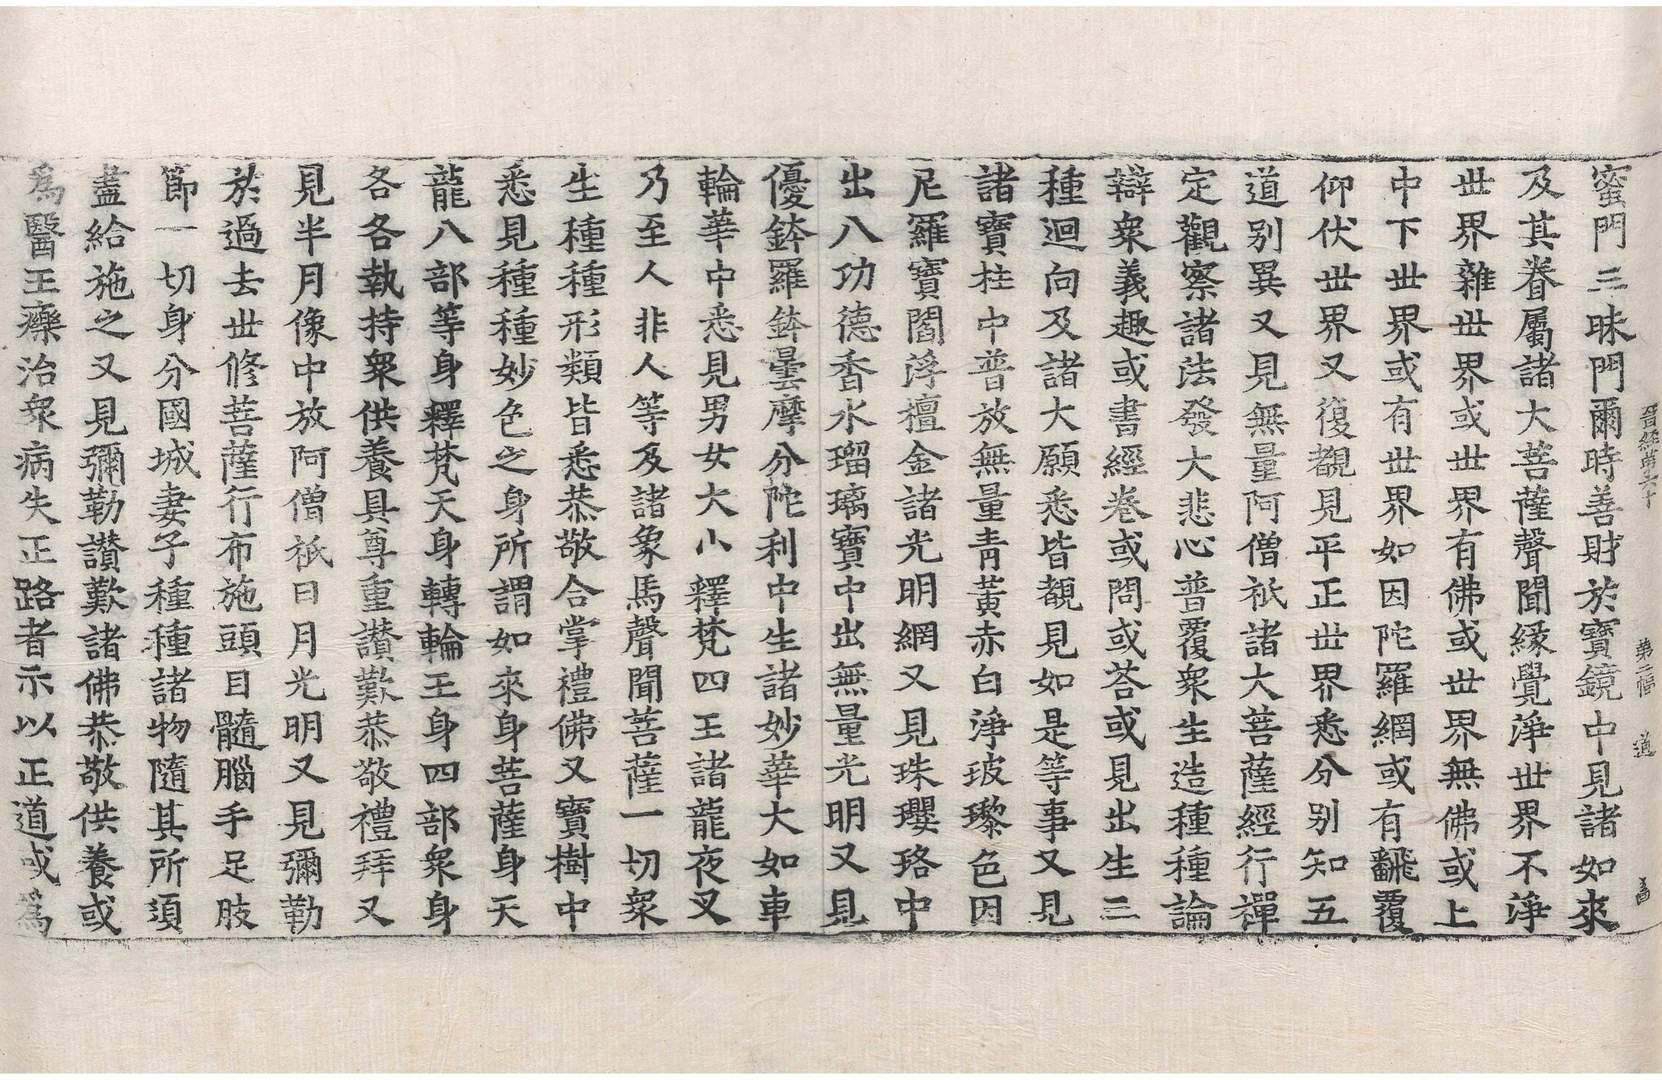 晉經第六十 第二幅 道
蜜門三昧門爾時善財於寶鏡中見諸如來
及其眷屬諸大菩薩聲聞緣覺淨世界不淨
世界雜世界或世界有佛或世界無佛或上
中下世界或有世界如因陀羅網或有飜覆
仰伏世界又復覩見平正世界悉分别知五
道别異又見無量阿僧祇諸大菩薩經行禪
定觀察諸法發大悲心普覆衆生造種種論
辯衆義趣或書經卷或問或荅或見出生三
種迴向及諸大願悉皆覩見如是等事又見
諸寶柱中普放無量青黃赤白淨玻瓈色因
尼羅寶閻浮檀金諸光明網又見珠瓔珞中
出八功德香水瑠璃寶中出無量光明又見
優鉢羅鉢曇摩分陀利中生諸妙華大如車
輪華中悉見男女大小釋梵四王諸龍夜叉
乃至人非人等及諸象馬聲聞菩薩一切衆
生種種形類皆悉恭敬合掌禮佛又寶樹中
悉見種種妙色之身所謂如來身菩薩身天
龍八部等身釋梵天身轉輪王身四部衆身
各各執持衆供養具尊重讃歎恭敬禮拜又
見半月像中放阿僧祇日月光明又見彌勒
於過去世修菩薩行布施頭目髓腦手足肢
節一切身分國城妻子種種諸物隨其所須
盡給施之又見彌勒讃歎諸佛恭敬供養或
爲醫王療治衆病失正路者示以正道或爲